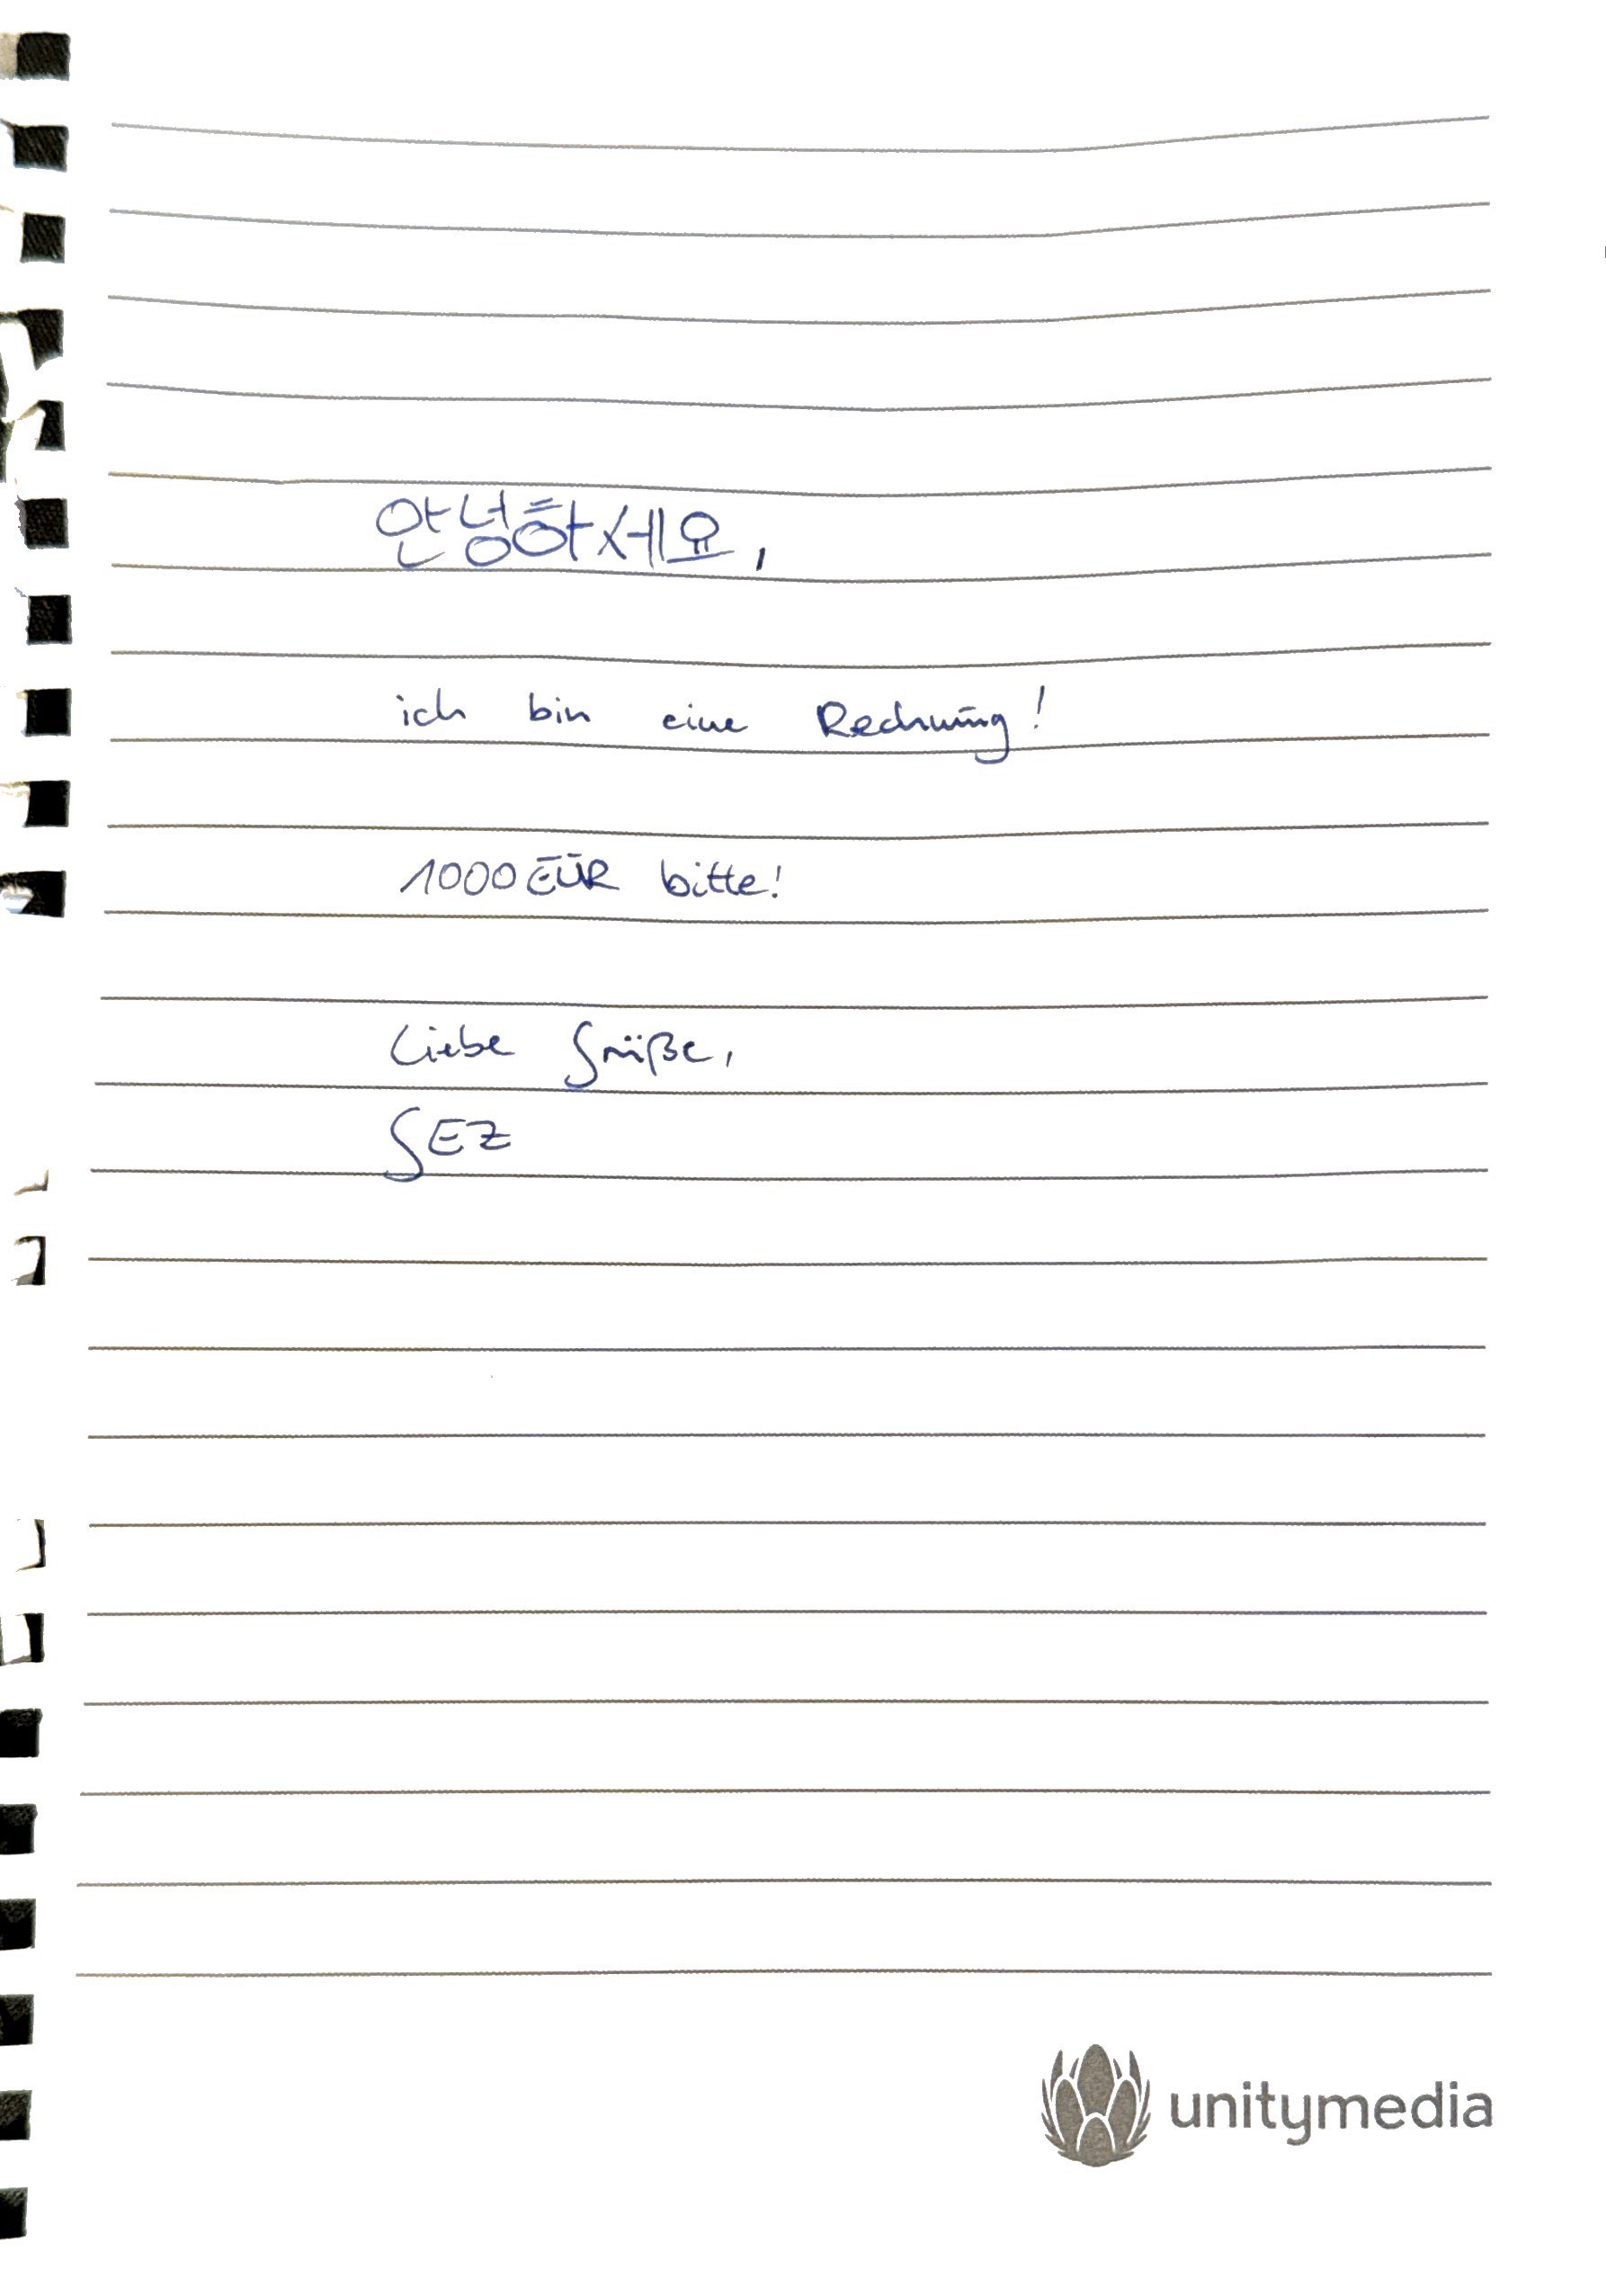 안녕하세요,
ich bin eine Rechnung!
1000 EUR bitte!
Liebe Grüße,
GEZ
unitymedia